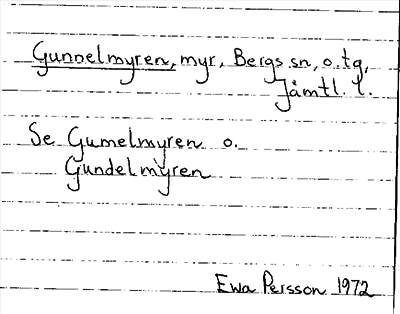 Gunnelmyren, myr, Bergs sn, o. tg,
Jämtl. l.
Se Gumelmyren o.
Gundelmyren
Ewa Persson 1972